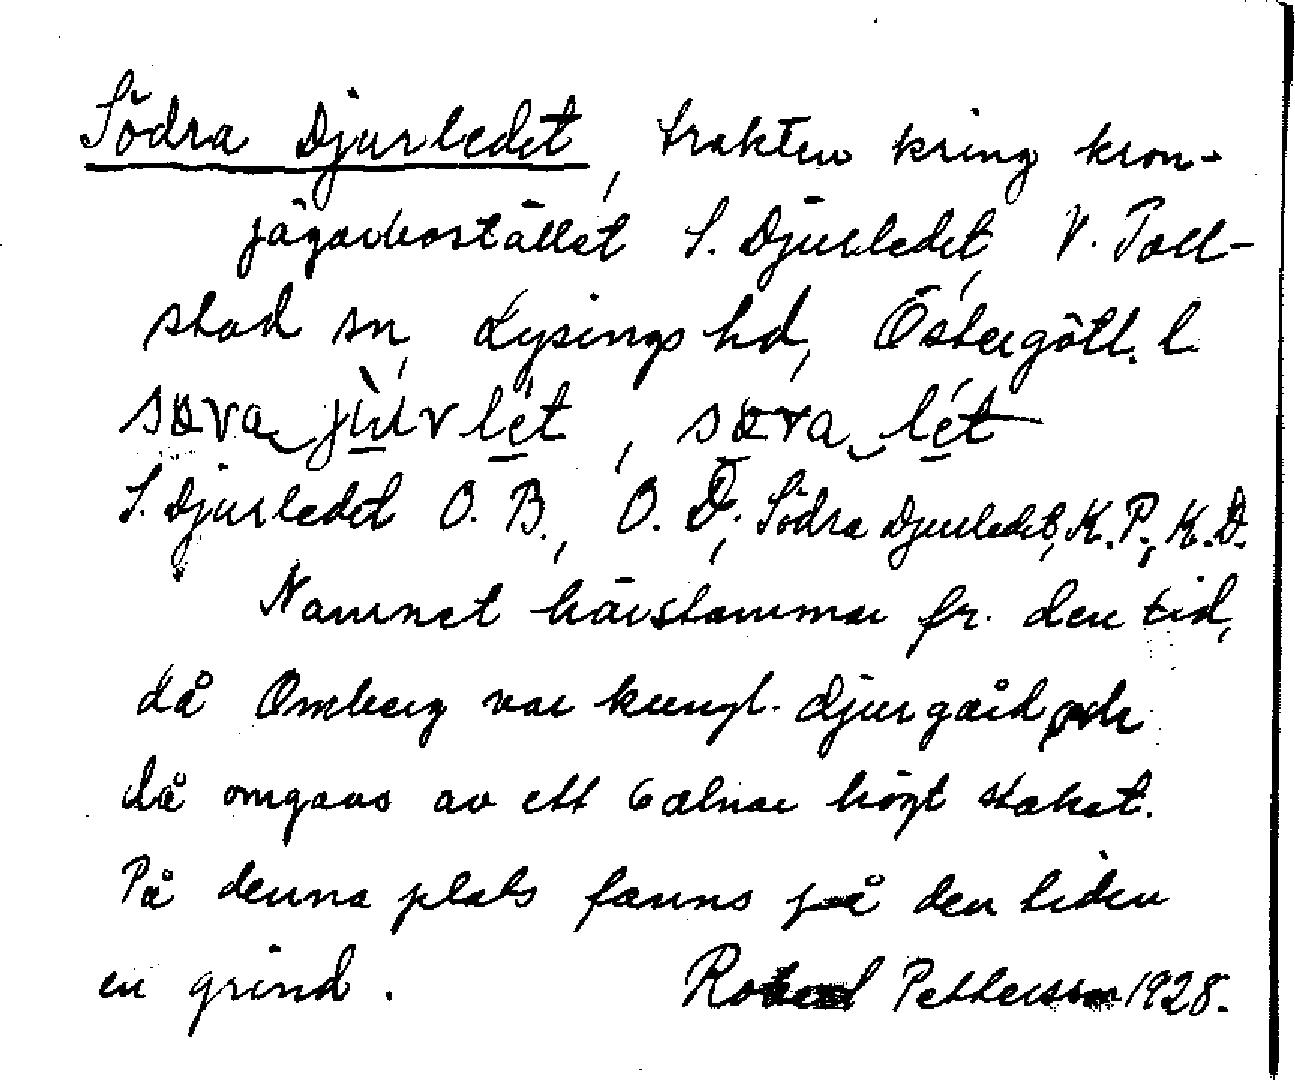 Södra Djurledet, trakten kring kron-
jägarbostället S. Djurledet, V. Toll-
stad sn, Lysings hd, Östergötl. l.
S. Djurledet O. B., O. D; Södra Djurledet, K. P., K. D.
Namnet härstammar fr. den tid,
då Omberg var kungl. djurgård och
då omgavs av ett 6 alnar högt staket.
På denna plats fanns på den tiden
en grind. Robert Pettersson 1928.